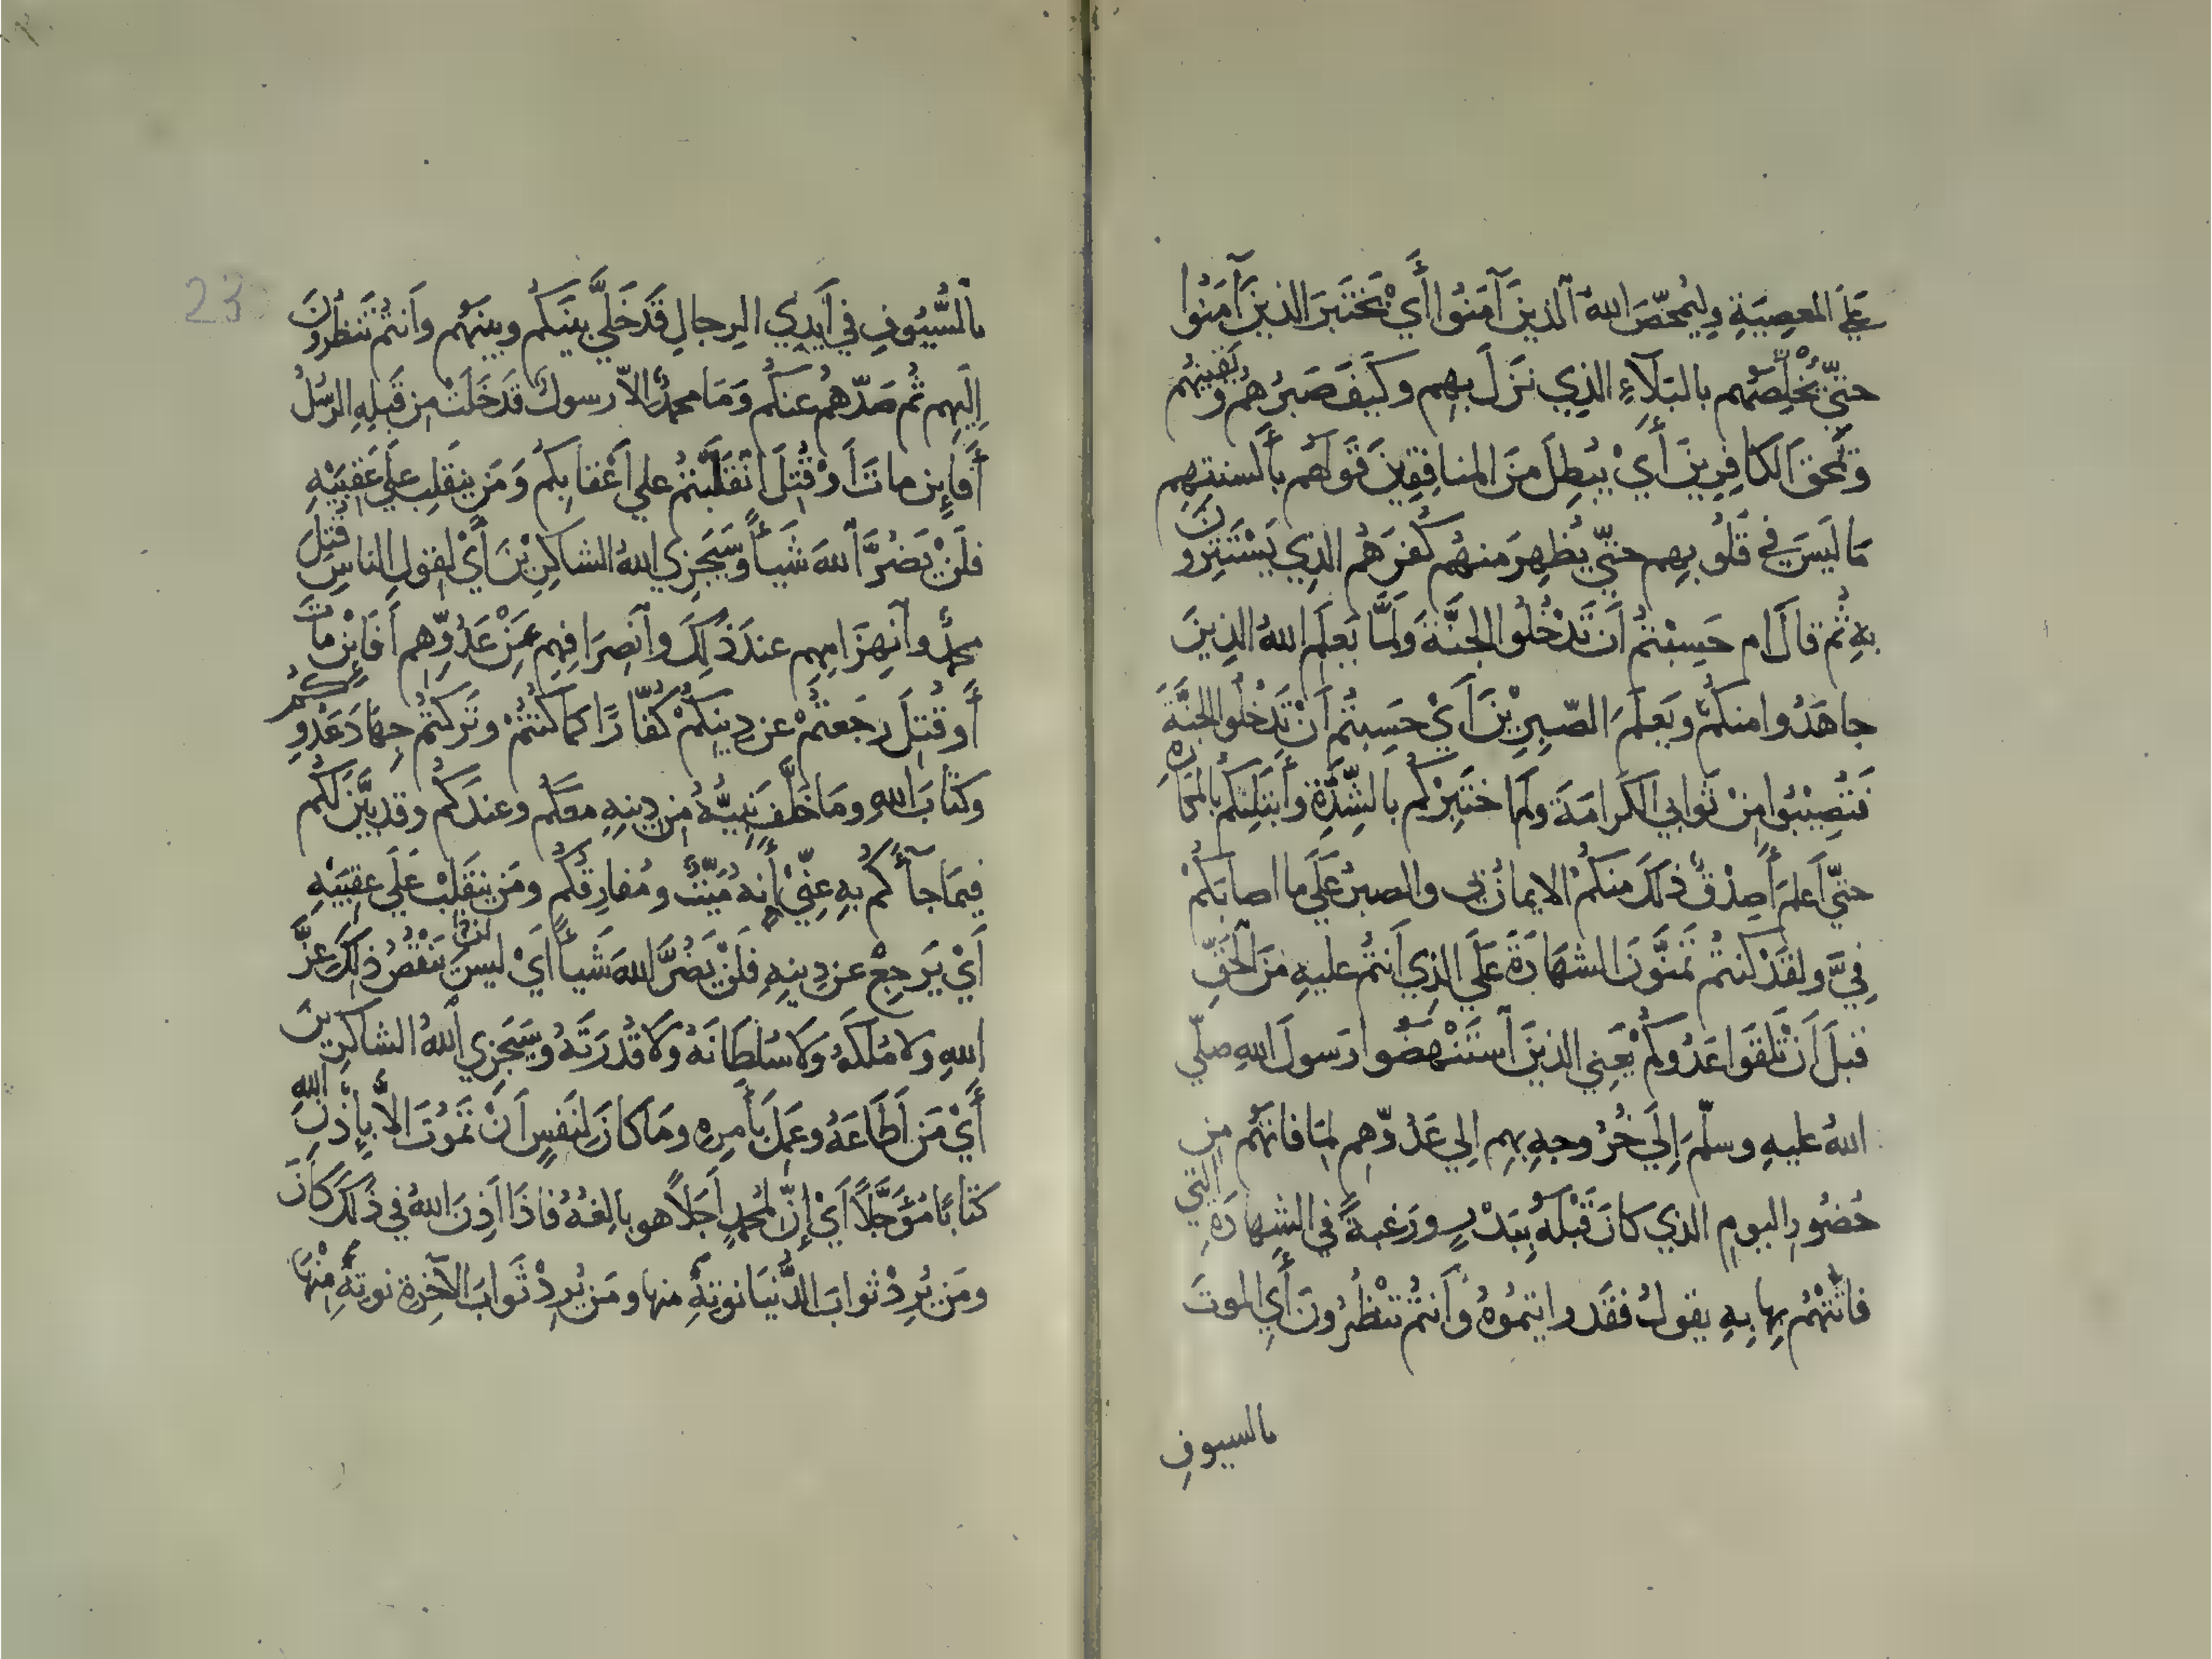 عَلَى المعصِيَةِ وليُمَحّصَ اللهُ الذينَ آمَنُوا أَيْ يَخْتَبَرَ الذينَ آمَنُوا
حتيّ يُخَلِّصَهُم بالبَلآءِ الذِي نَزَلَ بهِم وكَيفَ صَبرُهُم ويَقينُهُم
وَيمحَقَ الكافِرِينَ أَيْ يُبْطِلَ مِنَ المنافِقِينَ قَولَهُم بألسنتِهِم
مَا لَيسَ فِي قُلُوبِهِم حتيّ يُظهِرَ منهُم كُفرَهُم الذِي يَسْتَتِرونَ
بهِ ثُم قالَ ام حَسِبْتمُ أَن تَدْخُلُوا الجنَّةَ وَلَمَّا يَعلَمِ اللهُ الذِينَ
جاهَدُوا منكُم ويَعلَمَ الصّبِرِيْنَ أَيْ حَسِبتُم أَنْ تَدخُلُوا الجنَّةَ
فَتُصِيْبُوا مِنْ ثَوابي الكَرامَةَ ولم اختَبِرْكُم بالشِّدَّةِ وأَبتَلِيَكُم بالمكارِهِ
حتيّ أَعلمَ أَصِدْقٌ ذلكَ منكُم الايمانُ بي والصبرُ عَلَي ما اصابَكُمْ
فِيَّ ولقَدْ كنتمُ تَمَنَّونَ الشهَادَةَ عَلَي الذِي أَنتُم عليهِ مِنَ الحَقِّ
قبلَ أَنْ تَلْقَوا عَدُوكُم يْعَنِي الذينَ اسْتَنْهَضُوا رَسولَ اللهِ صلّي
اللهُ عليهِ وسلّمَ إِلَي خُرُوجِهِ بهِم الِي عَدُوّهِم لِمَا فاتَهُم مِن
حُضُورِ اليومِ الذي كانَ قَبْلَهُ بِبَدْرٍ ورَغبةً في الشهادَةِ التي
فاتَتْهُم بِها بِهِ يقولُ فقَد رايتمُوهُ وأَنتُم تَنْظُرُونَ أَي الموتَ
بالسيوفِ
23
بالسُّيُوفِ في أَيدِي الرِجالِ قَدَ خَلَّي بينَكُم وبينَهُم وأَنتُم تَنظُرُونَ
إِلَيهِم ثُم صَدّهُم عنكُم وَمَا محمدٌ الاّ رسولٌ قدَ خَلَتْ مِن قَبلِهِ الرسُلُ
أَفَإِين ماتَ أَوْ قُتِلَ انْقَلَبْتُمُ علي أَعْقابِكُم وَمَن ينقَلِب عَلَي عَقِبَيْهِ
فلَنْ يَضُرَّ اللهَ شَيأً وسَيَجزِي اللهُ الشاكرِيْنَ أَيْ لقولِ الناسِ قُتِلَ
محمدٌ وانهِزَامِهِم عندَ ذَلِكَ وانصِرَافِهِم عَنْ عَدُوّهِم أَفَإِنْ ماتَ
أَو قُتِلَ رجَعتُمْ عن دِينِكُمْ كُفّارًا كما كُنتُمْ وتَرَكتُمْ جِهادَ عَدُوِّكُم
وكتابَ اللهِ ومَا خَلَّفَ نَبِيُّهُ مِن دِينِهِ معَكُم وعندَكُم وقد بَيَّنَ لكُم
فيمَا جآءَكُم بِهِ عنِّي أَنهُ مَيِّتٌ ومُفارِقُكُم ومَن يَنقَلِبْ عَلَي عقِبَيهِ
أَيْ يَرجِعْ عن دِينِهِ فلَنْ يَضُرَّ اللهَ شَيأً أَيْ ليسَ يَنْقُصُ ذلِكَ عِزَّ
اللهِ ولا مُلكَهُ ولا سُلطَانَهُ ولا قُدرَتَهُ وسَيَجزِي اللهُ الشاكرِينَ
أَيْ مَن أَطَاعَهُ وعَمِلَ بأَمرِهِ ومَا كانَ لنَفسٍ أَنْ تَمُوتَ الاَّ بإِذْنِ اللهِ
كتابًا مُؤَجَّلاً أَيْ إِنّ لمحمدٍ أَجَلاً هو بالِغُهُ فاذَا أَذِنَ اللهُ في ذَلكَ كانَ
ومَن يُرِدْ ثوابَ الدُّنيَا نوتِهِ منها ومَن يُرِدْ ثَوابَ الآخِرةِ نوتِهِ مِنْهَا